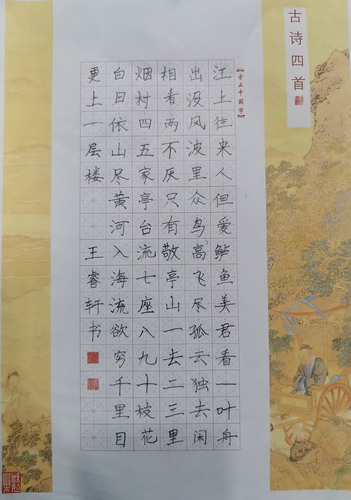 古诗四首
江上往来人但爱鲈鱼美君看一叶舟
出没风波里众鸟高飞尽孤云独去闲
相看两不厌只有敬亭山一去二三里
烟村四五家亭台流七座八九十枝花
白日依山尽黄河入海流欲穷千里目
更上一层楼 王睿轩书